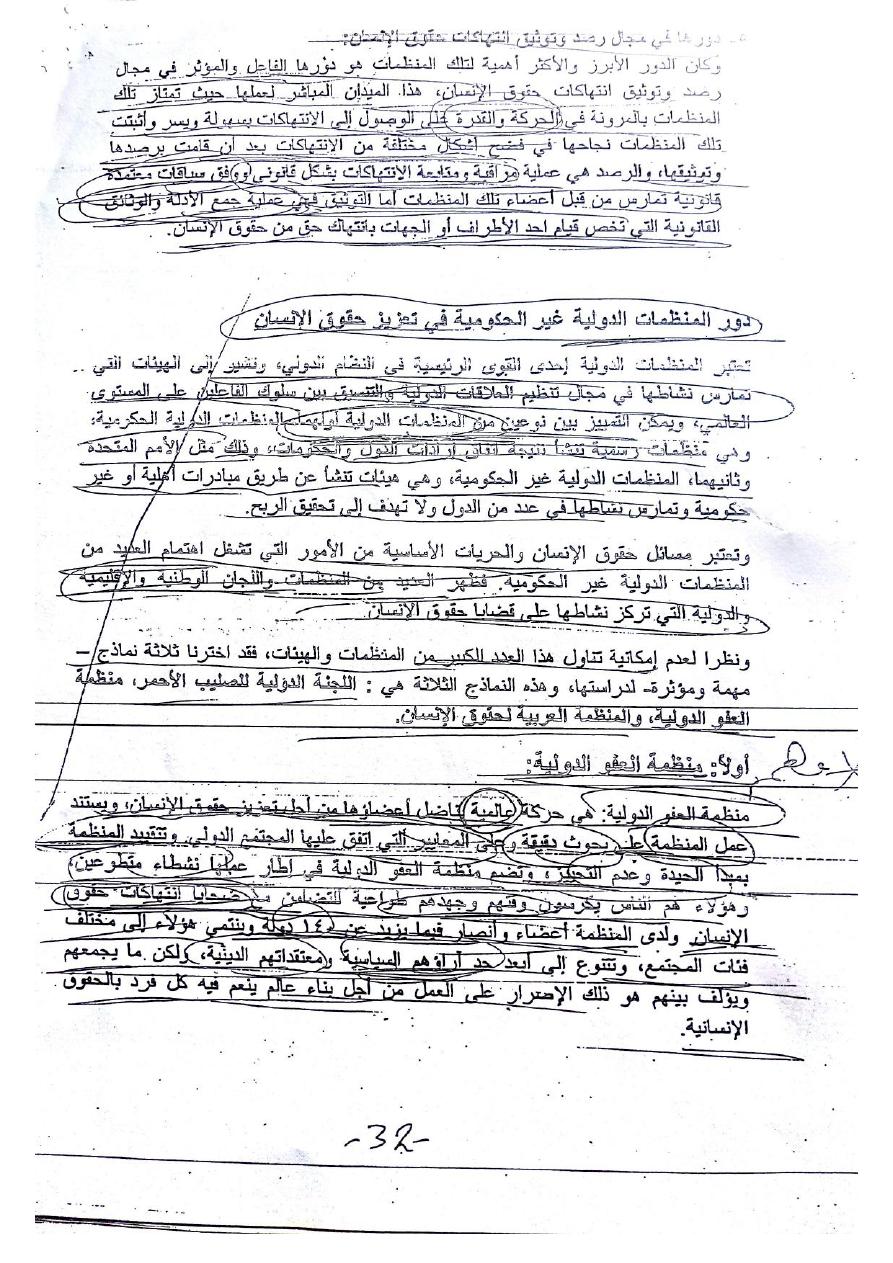 ٥- دورها في مجال رصد وتوثيق انتهاكات حقوق الإنسان:
وكان الدور الأبرز والأكثر أهمية لتلك المنظمات هو دورها الفاعل والمؤثر في مجال
رصد وتوثيق انتهاكات حقوق الإنسان، هذا الميدان المباشر لعملها حيث تمتاز تلك
المنظمات بالمرونة في الحركة والقدرة على الوصول إلى الانتهاكات بسهولة ويسر وأثبتت
تلك المنظمات نجاحها في فضح أشكال مختلفة من الانتهاكات بعد أن قامت برصدها
وتوثيقها، والرصد هي عملية مراقبة ومتابعة الانتهاكات بشكل قانوني ووفق سياقات معتمدة
قانونية تمارس من قبل أعضاء تلك المنظمات أما التوثيق فهي عملية جمع الأدلة والوثائق
القانونية التي تخص قيام احد الأطراف أو الجهات بانتهاك حق من حقوق الإنسان.
دور المنظمات الدولية غير الحكومية في تعزيز حقوق الإنسان
تعتبر المنظمات الدولية إحدى القوى الرئيسية في النظام الدولي، وتشير إلى الهيئات التي
تمارس نشاطها في مجال تنظيم العلاقات الدولية والتنسيق بين سلوك الفاعلين على المستوى
العالمي، ويمكن التمييز بين نوعين من المنظمات الدولية أولهما، المنظمات الدولية الحكومية:
وهي منظمات رسمية تنشأ نتيجة اتفاق إرادات الدول والحكومات، وذلك مثل الأمم المتحدة
وثانيهما، المنظمات الدولية غير الحكومية، وهي هيئات تنشأ عن طريق مبادرات أهلية أو غير
حكومية وتمارس نشاطها في عدد من الدول ولا تهدف إلى تحقيق الربح.
وتعتبر مسائل حقوق الإنسان والحريات الأساسية من الأمور التي تشغل اهتمام العديد من
المنظمات الدولية غير الحكومية. فظهر العديد من المنظمات واللجان الوطنية والإقليمية
والدولية التي تركز نشاطها على قضايا حقوق الإنسان.
ونظرا لعدم إمكانية تناول هذا العدد الكبير من المنظمات والهيئات، فقد اخترنا ثلاثة نماذج –
مهمة ومؤثرة- لدراستها، وهذه النماذج الثلاثة هي : اللجنة الدولية للصليب الأحمر، منظمة
العفو الدولية، والمنظمة العربية لحقوق الإنسان.
أولاً: منظمة العفو الدولية:
منظمة العفو الدولية: هي حركة عالمية يناضل أعضاؤها من أجل تعزيز حقوق الإنسان، ويستند
عمل المنظمة على بحوث دقيقة وعلى المعايير التي اتفق عليها المجتمع الدولي. وتتقيد المنظمة
بمبدأ الحيدة وعدم التحيز، وتضم منظمة العفو الدولية في إطار عملها نشطاء متطوعين،
وهؤلاء هم الناس يكرسون وقتهم وجهدهم طواعية للتضامن مع ضحايا انتهاكات حقوق
الإنسان. ولدى المنظمة أعضاء وأنصار فيما يزيد عن ١٤٠ دولة وينتمي هؤلاء إلى مختلف
فئات المجتمع، وتتنوع إلى أبعد حد آراؤهم السياسية ومعتقداتهم الدينية، ولكن ما يجمعهم
ويؤلف بينهم هو ذلك الإصرار على العمل من أجل بناء عالم ينعم فيه كل فرد بالحقوق
الإنسانية.
-32-